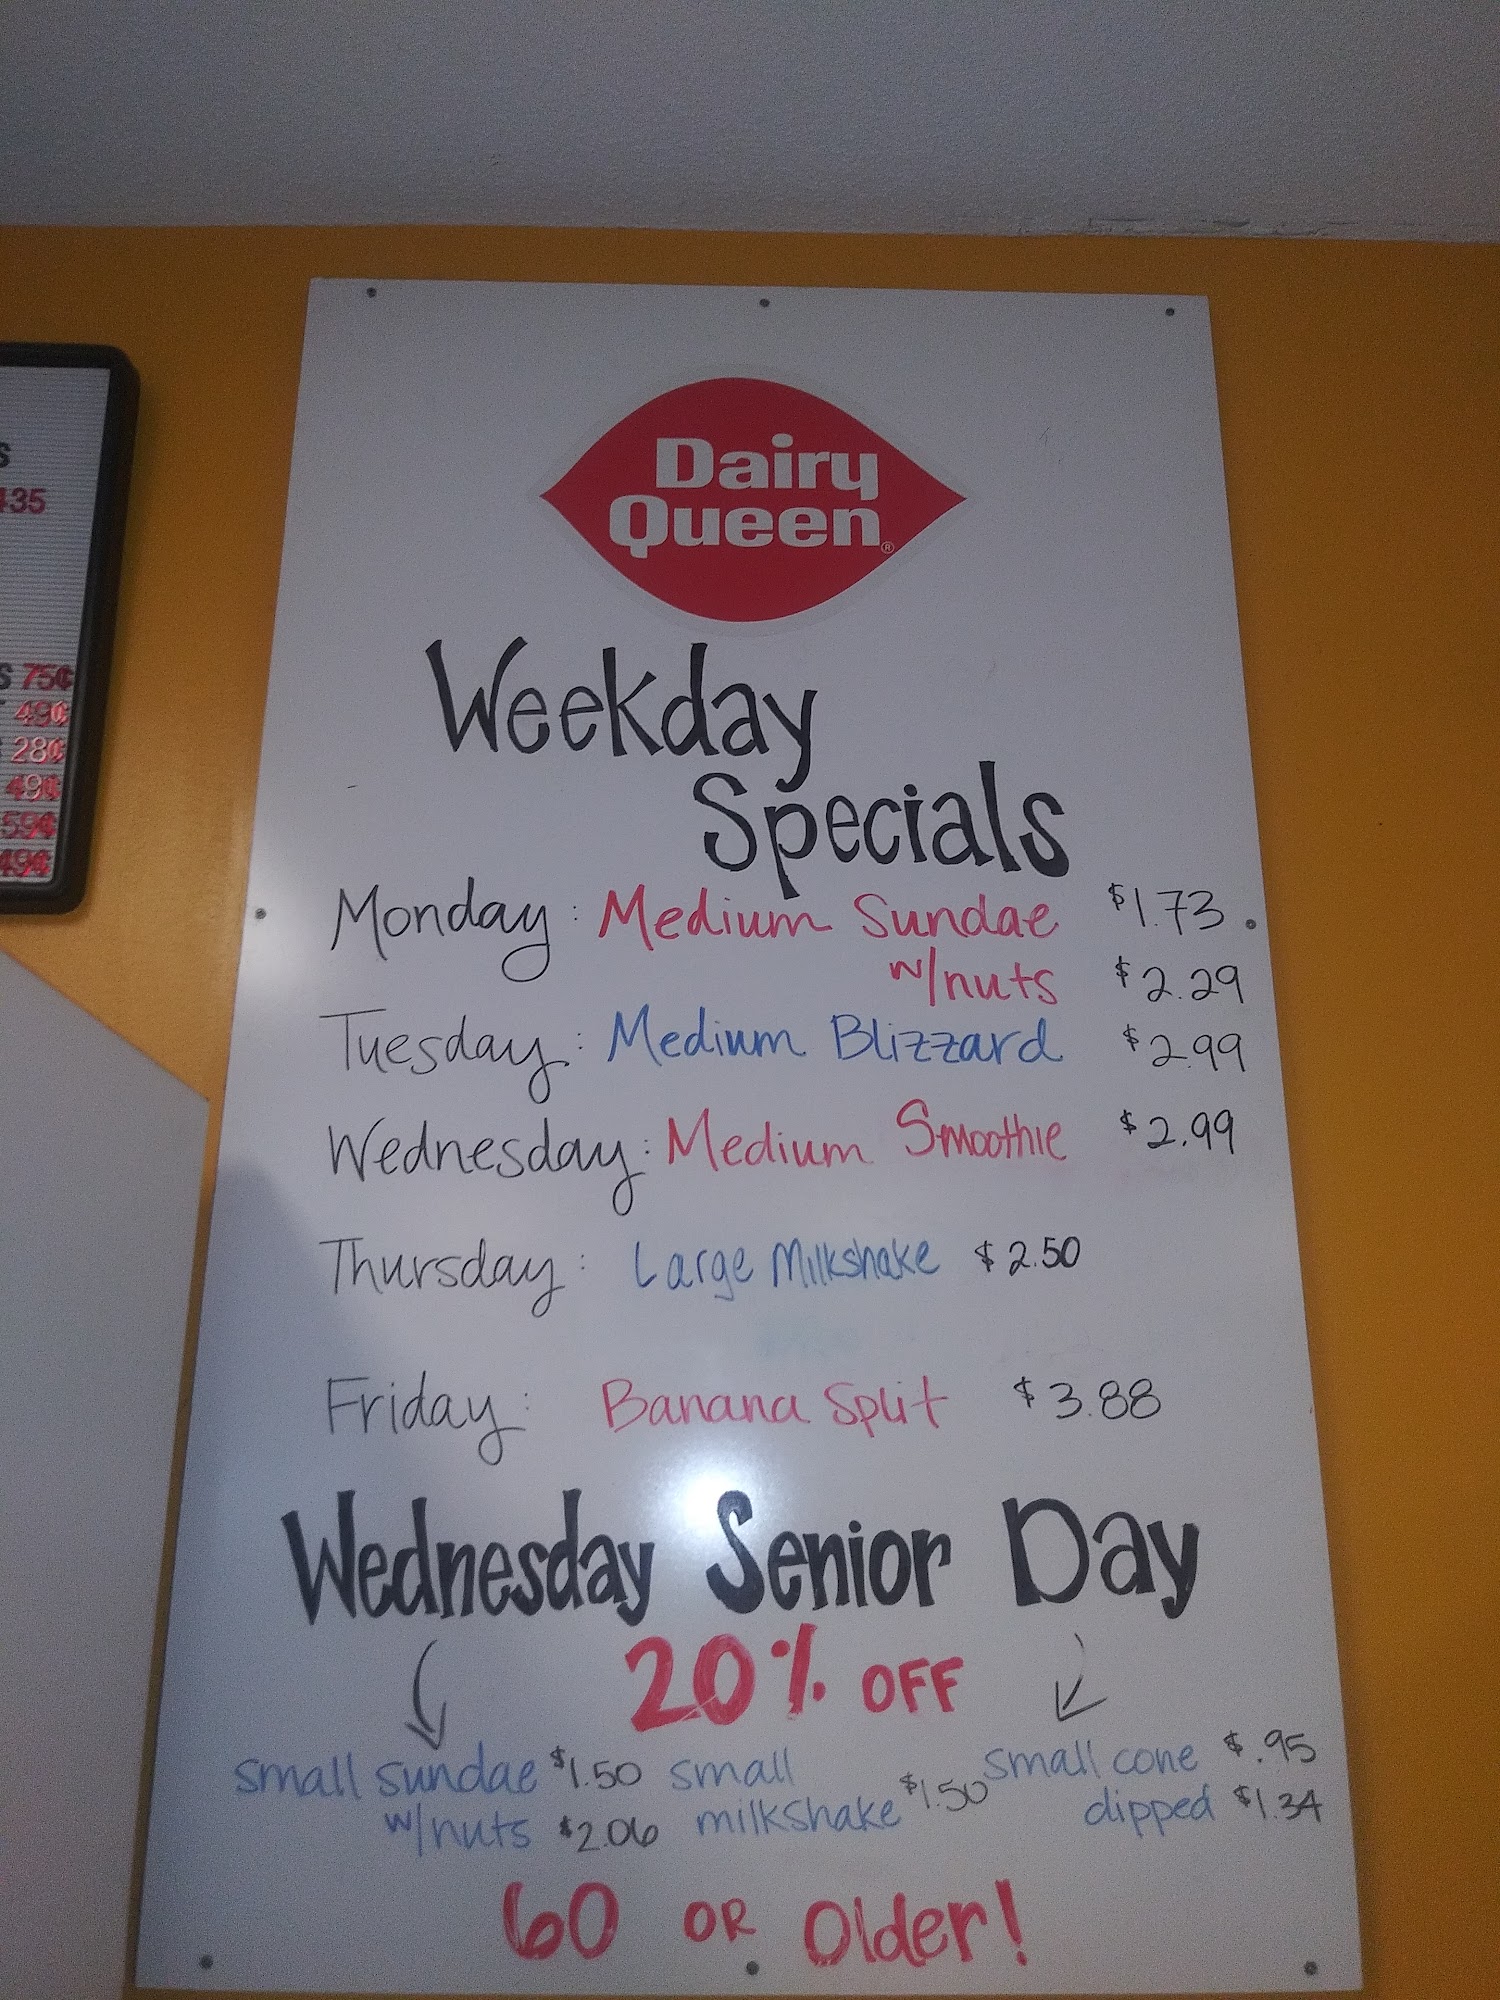 S
435
S 75¢
49¢
28¢
49¢
59¢
49¢
Dairy
Queen®
Weekday
Specials
Monday: Medium Sundae $1.73
w/nuts $2.29
Tuesday: Medium Blizzard $2.99
Wednesday: Medium Smoothie $2.99
Thursday: Large Milkshake $2.50
Friday: Banana Split $3.88
Wednesday Senior Day
20% OFF
small sundae $1.50 small small cone $.95
w/nuts $2.06 milkshake $1.50 dipped $1.34
60 OR Older!